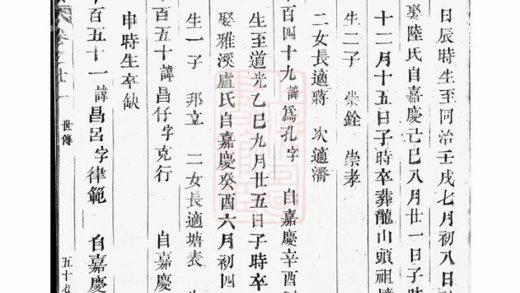 日辰時生至同治壬戌七月初八日
娶陸氏自嘉慶己巳八月廿一日子時
十二月十五日子時卒葬龍山頭祖
生二子 崇銓 崇孝
二女長適蔣 次適潘
百四十九諱為孔字 自嘉慶辛酉
生至道光乙巳九月廿五日子時卒
娶雅溪盧氏自嘉慶癸酉六月初四
生一子 邦立 二女長適塘表
百五十諱昌仔字克行 自嘉慶
申時生卒缺
百五十一諱昌呂字律範 自嘉慶
世傳
五十七